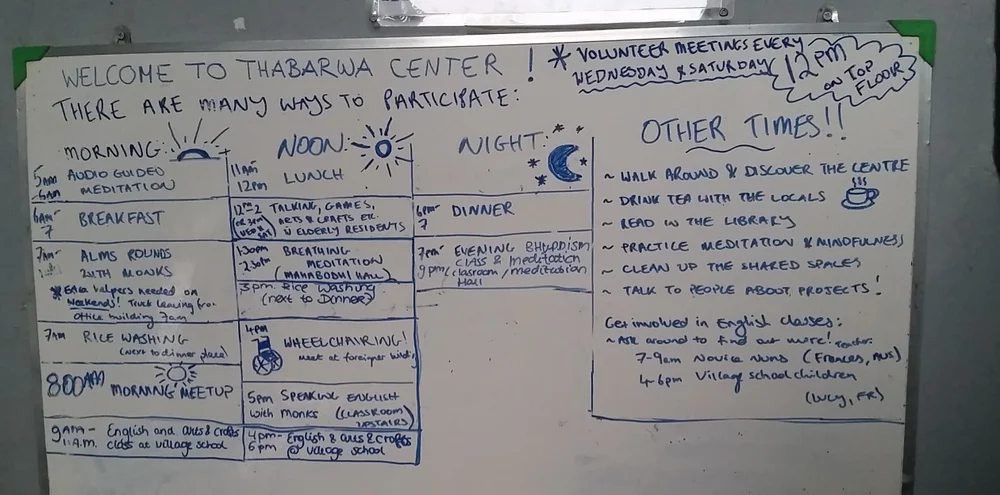 WELCOME TO THABARWA CENTER !
* VOLUNTEER MEETINGS EVERY
WEDNESDAY & SATURDAY
12PM
ON TOP
FLOOR
THERE ARE MANY WAYS TO PARTICIPATE:
MORNING:
5AM
-6AM
AUDIO GUIDED
MEDITATION
6AM-
7
BREAKFAST
7AM-
ALMS ROUNDS
WITH MONKS
* Extra helpers needed on
Weekends! Truck leaving from
office building 7am
7AM
RICE WASHING
(next to dinner place)
800AM
MORNING MEETUP
9AM-
11A.M.
English and arts & crafts
class at village school
NOON:
11AM
12PM
LUNCH
12PM-2
TALKING, GAMES,
ARTS & CRAFTS ETC.
ELDERLY RESIDENTS
1:30PM
-2:30PM
BREATHING
MEDITATION
(MAHABODHI HALL)
3pm Rice Washing
(next to Dinner)
4PM
WHEELCHAIRING!
meet at foreigner
5pm SPEAKING ENGLISH
with monks (CLASSROOM
UPSTAIRS)
4pm-
6pm
English & arts & crafts
@ village school
NIGHT:
6PM-
7
DINNER
7PM-
9PM
EVENING BHUDDISM
class & meditation
(classroom/meditation
Hall
OTHER TIMES!!
~ WALK AROUND & DISCOVER THE CENTRE
~ DRINK TEA WITH THE LOCALS
~ READ IN THE LIBRARY
~ PRACTICE MEDITATION & MINDFULNESS
~ CLEAN UP THE SHARED SPACES
~ TALK TO PEOPLE ABOUT PROJECTS!
Get involved in English classes:
~ ASK around to find out more!
Teacher:
7-9am Novice Nuns (Frances, AUS)
4-6pm Village school children
(Lucy, FR)